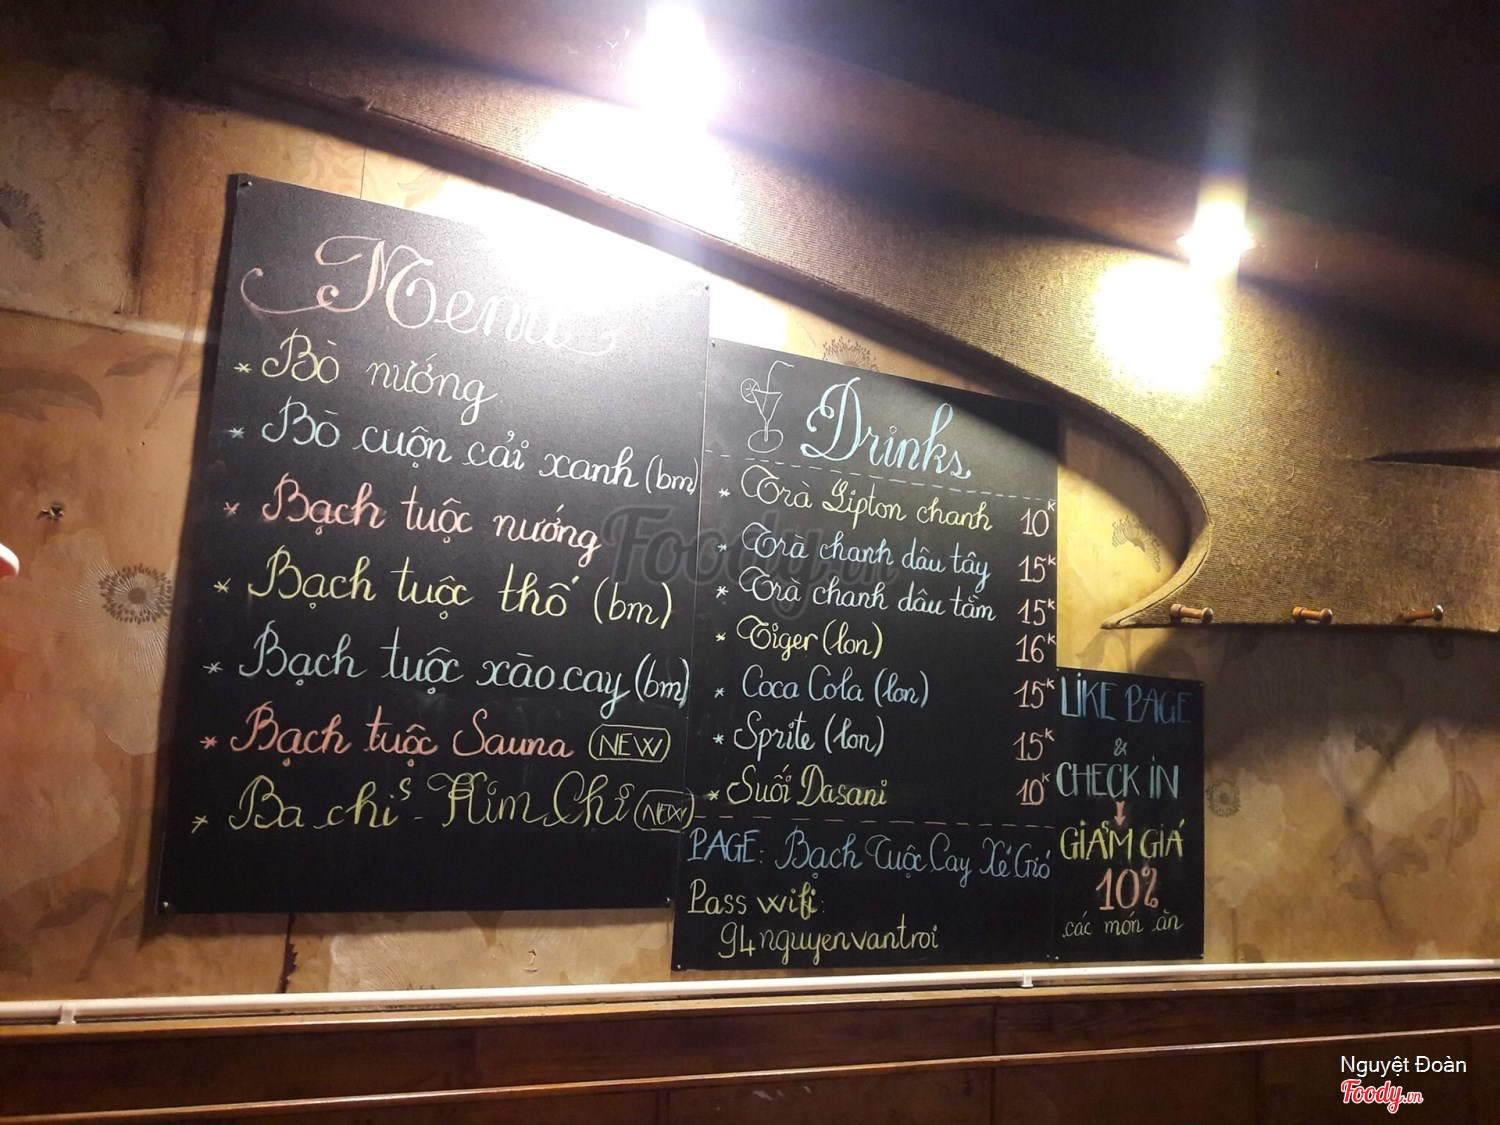 Menu
* Bò nướng
* Bò cuộn cải xanh (bm)
* Bạch tuộc nướng
* Bạch tuộc thố (bm)
* Bạch tuộc xào cay (bm)
* Bạch tuộc Sauna (NEW)
* Ba chỉ - Kim Chi (NEW)
Drinks
* Trà Lipton chanh 10K
* Trà chanh dâu tây 15K
* Trà chanh dâu tằm 15K
* Tiger (lon) 16K
* Coca Cola (lon) 15K
* Sprite (lon) 15K
* Suối Dasani 10K
PAGE: Bạch Tuộc Cay Xé Gió
Pass wifi:
94nguyenvantroi
LIKE PAGE
&
CHECK IN
GIẢM GIÁ
10%
các món ăn
Foody.vn
Nguyệt Đoàn
Foody.vn